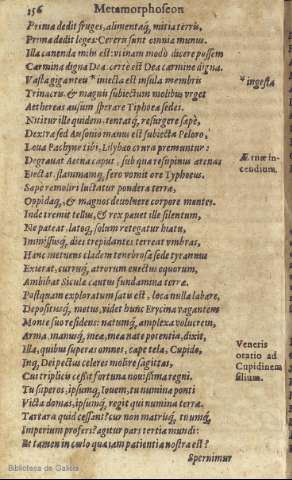 156 Metamorphoseon
Prima dedit fruges, alimentaq́; mitia terris,
Prima dedit leges: Cereris sunt omnia munus.
Illa canenda mihi est: vtinam modo dicere possem
Carmina digna Dea. certè est Dea carmine digna.
Vasta giganteis * iniecta est insula membris
* ingesta
Trinacris: & magnis subiectum molibus vrget
Aethereas ausum sperare Typhoea sedes.
Nititur ille quidem, tentatq́; resurgere sæpè,
Dextra sed Ausonio manus est subiecta Peloro,
Leua Pachyne tibi, Lilybæo crura premuntur:
Degrauat Aetna caput, sub qua resupinus arenas
Ætnæ in-
cendium.
Eiectat, flammamq́; fero vomit ore Typhoeus.
Sæpe remoliri luctatur pondera terræ,
Oppidaq́;, & magnos deuoluere corpore montes.
Inde tremit tellus, & rex pauet ille silentum,
Ne pateat, latoq́; solum retegatur hiatu,
Immissusq́; dies trepidantes terreat vmbras,
Hanc metuens cladem tenebrosa sede tyrannus
Exierat, curruq́; atrorum euectus equorum,
Ambibat Siculæ cautus fundamina terræ.
Postquam exploratum satis est, loca nulla labare,
Depositiq́; metus, videt hunc Erycina vagantem
Monte suo residens: natumq́; amplexa volucrem,
Arma, manusq́; meæ, mea nate potentia, dixit,
Illa, quibus superas omnes, cape tela, Cupido,
Veneris
oratio ad
Cupidinem
filium.
Inq́; Dei pectus celeres molire sagittas,
Cui triplicis cessit fortuna nouissima regni.
Tu superos, ipsumq́; Iouem, tu numina ponti
Victa domas, ipsumq́; regit qui numina terræ.
Tartara quid cessant? cur non matrisq́; tuumq́;
Imperium profers? agitur pars tertia mundi:
Et tamen in cælo quoq́; iam patientia nostra est?
Spernimur
Biblioteca de Galicia